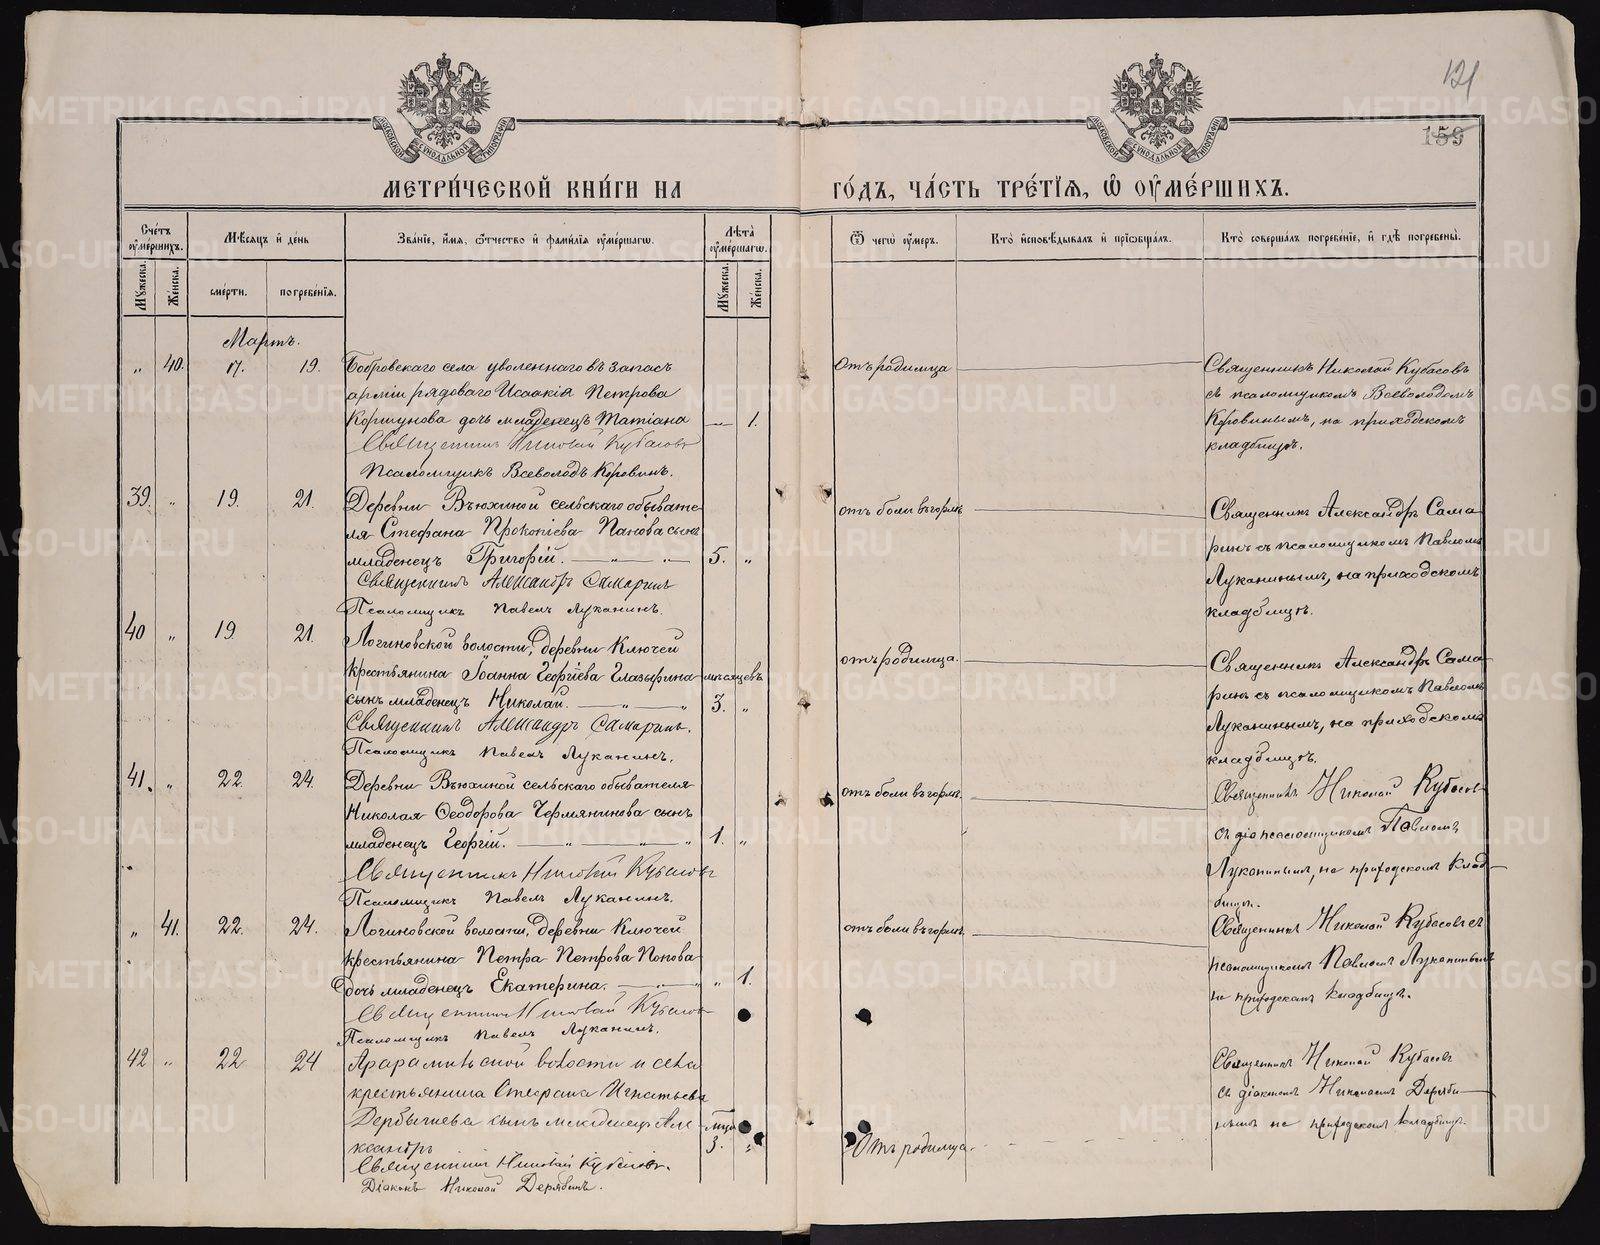 121
159
МОСКОВСКОЙ СѴНОДАЛЬНОЙ ТИПОГРАФІИ
МОСКОВСКОЙ СѴНОДАЛЬНОЙ ТИПОГРАФІИ
МЕТРИ́ЧЕСКОЙ КНИ́ГИ НА
ГО́ДЪ, ЧА́СТЬ ТРЕ́ТІѦ, Ѿ ОУ҆МЕ́РШИХЪ.
Сче́тъ оу҆ме́ршихъ.
Мꙋ́жеска.
Же́нска.
Мѣ́сѧцъ и҆ де́нь
сме́рти.
погребе́нїѧ.
Зва́нїе, и҆́мѧ, ѻ҆́тчество и҆ фами́лїѧ оу҆ме́ршагѡ.
Лѣ́та оу҆ме́ршагѡ.
Мꙋ́жеска.
Же́нска.
Ѿ чегѡ̀ оу҆́меръ.
Кто̀ и҆сповѣ́дывалъ и҆ прїѡбща́лъ.
Кто̀ соверша́лъ погребе́нїе, и҆ гдѣ̀ погребены̀.
Мартъ.
„ 40. 17. 19. Бобровскаго села уволеннаго въ запасъ
арміи рядоваго Исаакія Петрова
Коршунова дочь младенецъ Татіана — 1.
Священникъ Николай Кубасовъ
Псаломщикъ Всеволодъ Коровинъ.
отъ родимца
Священникъ Николай Кубасовъ
съ псаломщикомъ Всеволодомъ
Коровинымъ, на приходскомъ
кладбищѣ.
39. „ 19. 21. Деревни Вьюхиной сельскаго обывате-
ля Стефана Прокопіева Панова сынъ
младенецъ Григорій. — „ — „ — 5. „
Священникъ Александръ Самаринъ
Псаломщикъ Павелъ Луканинъ.
отъ боли въ горлѣ
Священникъ Александръ Сама-
ринъ съ псаломщикомъ Павломъ
Луканинымъ, на приходскомъ
кладбищѣ.
40 „ 19 21. Логиновской волости, деревни Ключей
крестьянина Іоанна Георгіева Глазырина мѣсяцевъ
сынъ младенецъ Николай. — „ — „ 3. „
Священникъ Александръ Самаринъ.
Псаломщикъ Павелъ Луканинъ.
отъ родимца.
Священникъ Александръ Сама-
ринъ съ псаломщикомъ Павломъ
Луканинымъ, на приходскомъ
кладбищѣ.
41. „ 22. 24. Деревни Вьюхиной сельскаго обывателя
Николая Ѳеодорова Чермянинова сынъ
младенецъ Георгій. — „ — „ — „ 1. „
Священникъ Николай Кубасовъ
Псаломщикъ Павелъ Луканинъ.
отъ боли въ горлѣ.
Священникъ Николай Кубасовъ
съ псаломщикомъ Павломъ
Луканинымъ, на приходскомъ клад-
бищѣ.
„ 41. 22. 24. Логиновской волости, деревни Ключей
крестьянина Петра Петрова Попова
дочь младенецъ Екатерина. — „ — „ „ 1.
Священникъ Николай Кубасовъ
Псаломщикъ Павелъ Луканинъ.
отъ боли въ горлѣ.
Священникъ Николай Кубасовъ съ
псаломщикомъ Павломъ Луканинымъ
на приходскомъ кладбищѣ.
42 „ 22 24 Арарамиской волости и села
крестьянина Стефана Игнатьева
Дербышева сынъ младенецъ Але- мца
ксандръ 3. „
Священникъ Николай Кубасовъ.
Діаконъ Николай Дерябинъ.
Отъ родимца.
Священникъ Николай Кубасовъ
съ діакономъ Николаемъ Деряби-
нымъ на приходскомъ кладбищѣ.
METRIKI.GASO-URAL.RU